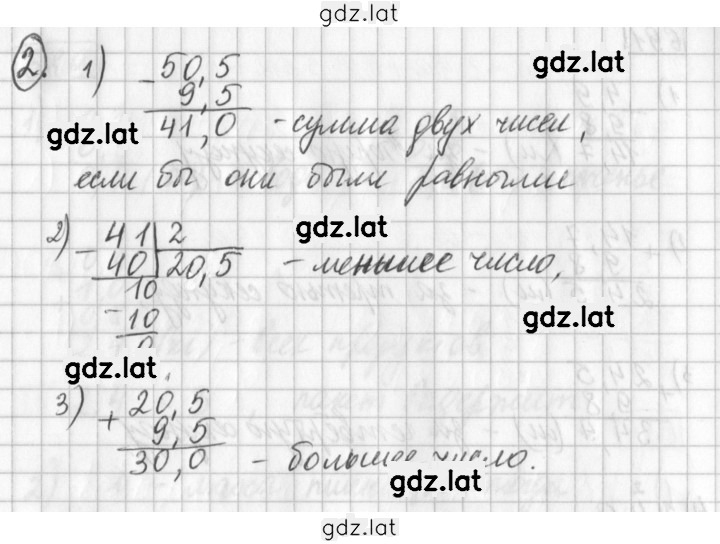 gdz.lat
2. 1) - 50,5
9,5
41,0 - сумма двух чисел,
gdz.lat
если бы они были равными
gdz.lat
2) - 41 | 2
40 | 20,5 - меньшее число,
10
- 10
0
gdz.lat
gdz.lat
3) + 20,5
9,5
30,0 - большее число.
gdz.lat
gdz.lat